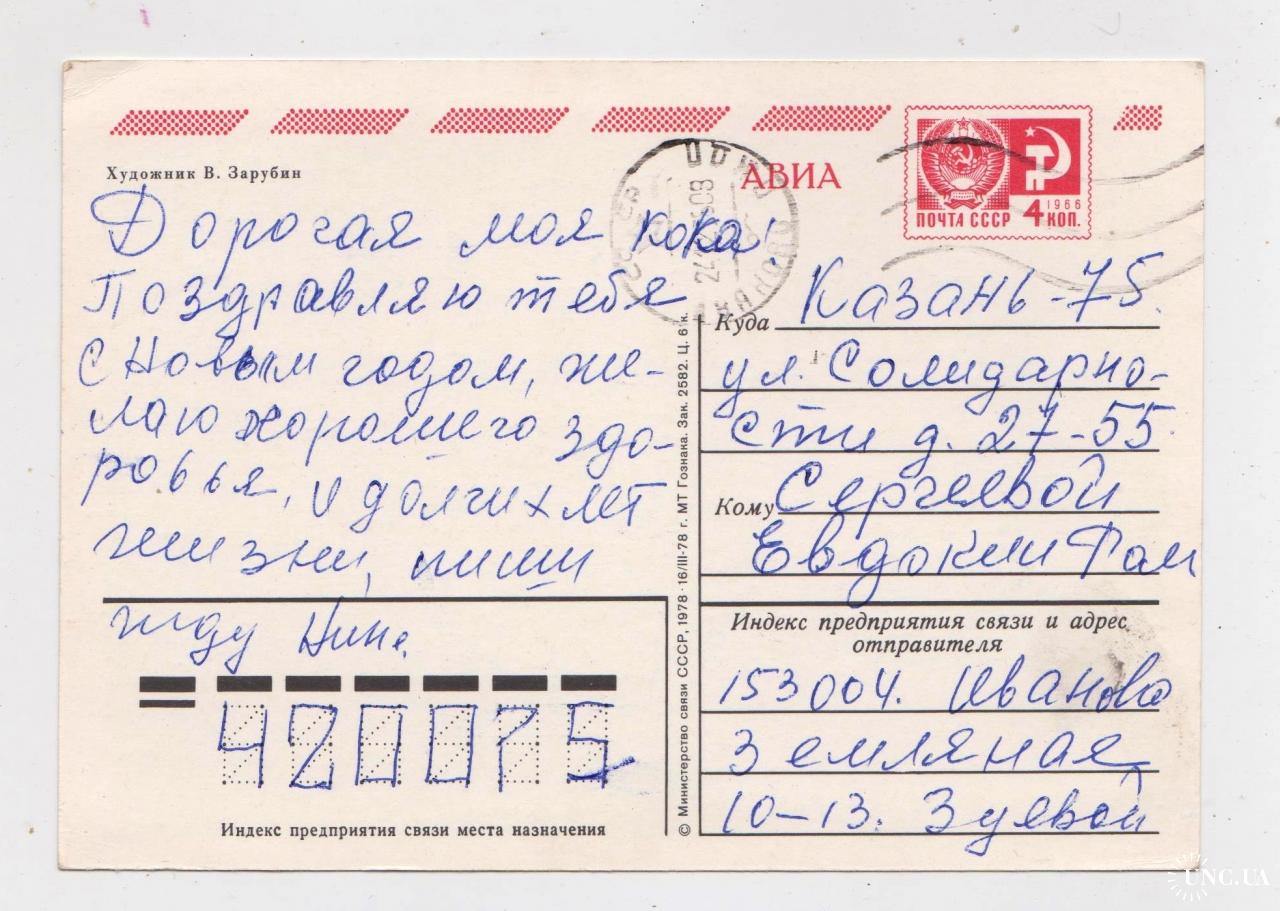 Художник В. Зарубин
АВИА
ПОЧТА СССР
4 КОП.
1966
Дорогая моя кока!
Поздравляю тебя
с Новым годом, же-
лаю хорошего здо-
ровья, и долгих лет
жизни, пиши
жду Нина.
420075
Индекс предприятия связи места назначения
© Министерство связи СССР, 1978 · 16/III-78 г. МТ Гознака. Зак. 2582. Ц. 6 к.
Куда Казань-75.
ул. Солидарно-
сти д. 27-55
Кому Сергеевой
Евдокии Рам
Индекс предприятия связи и адрес
отправителя
153004. Иваново
Земляная
10-13. Зуевой
UNC.UA